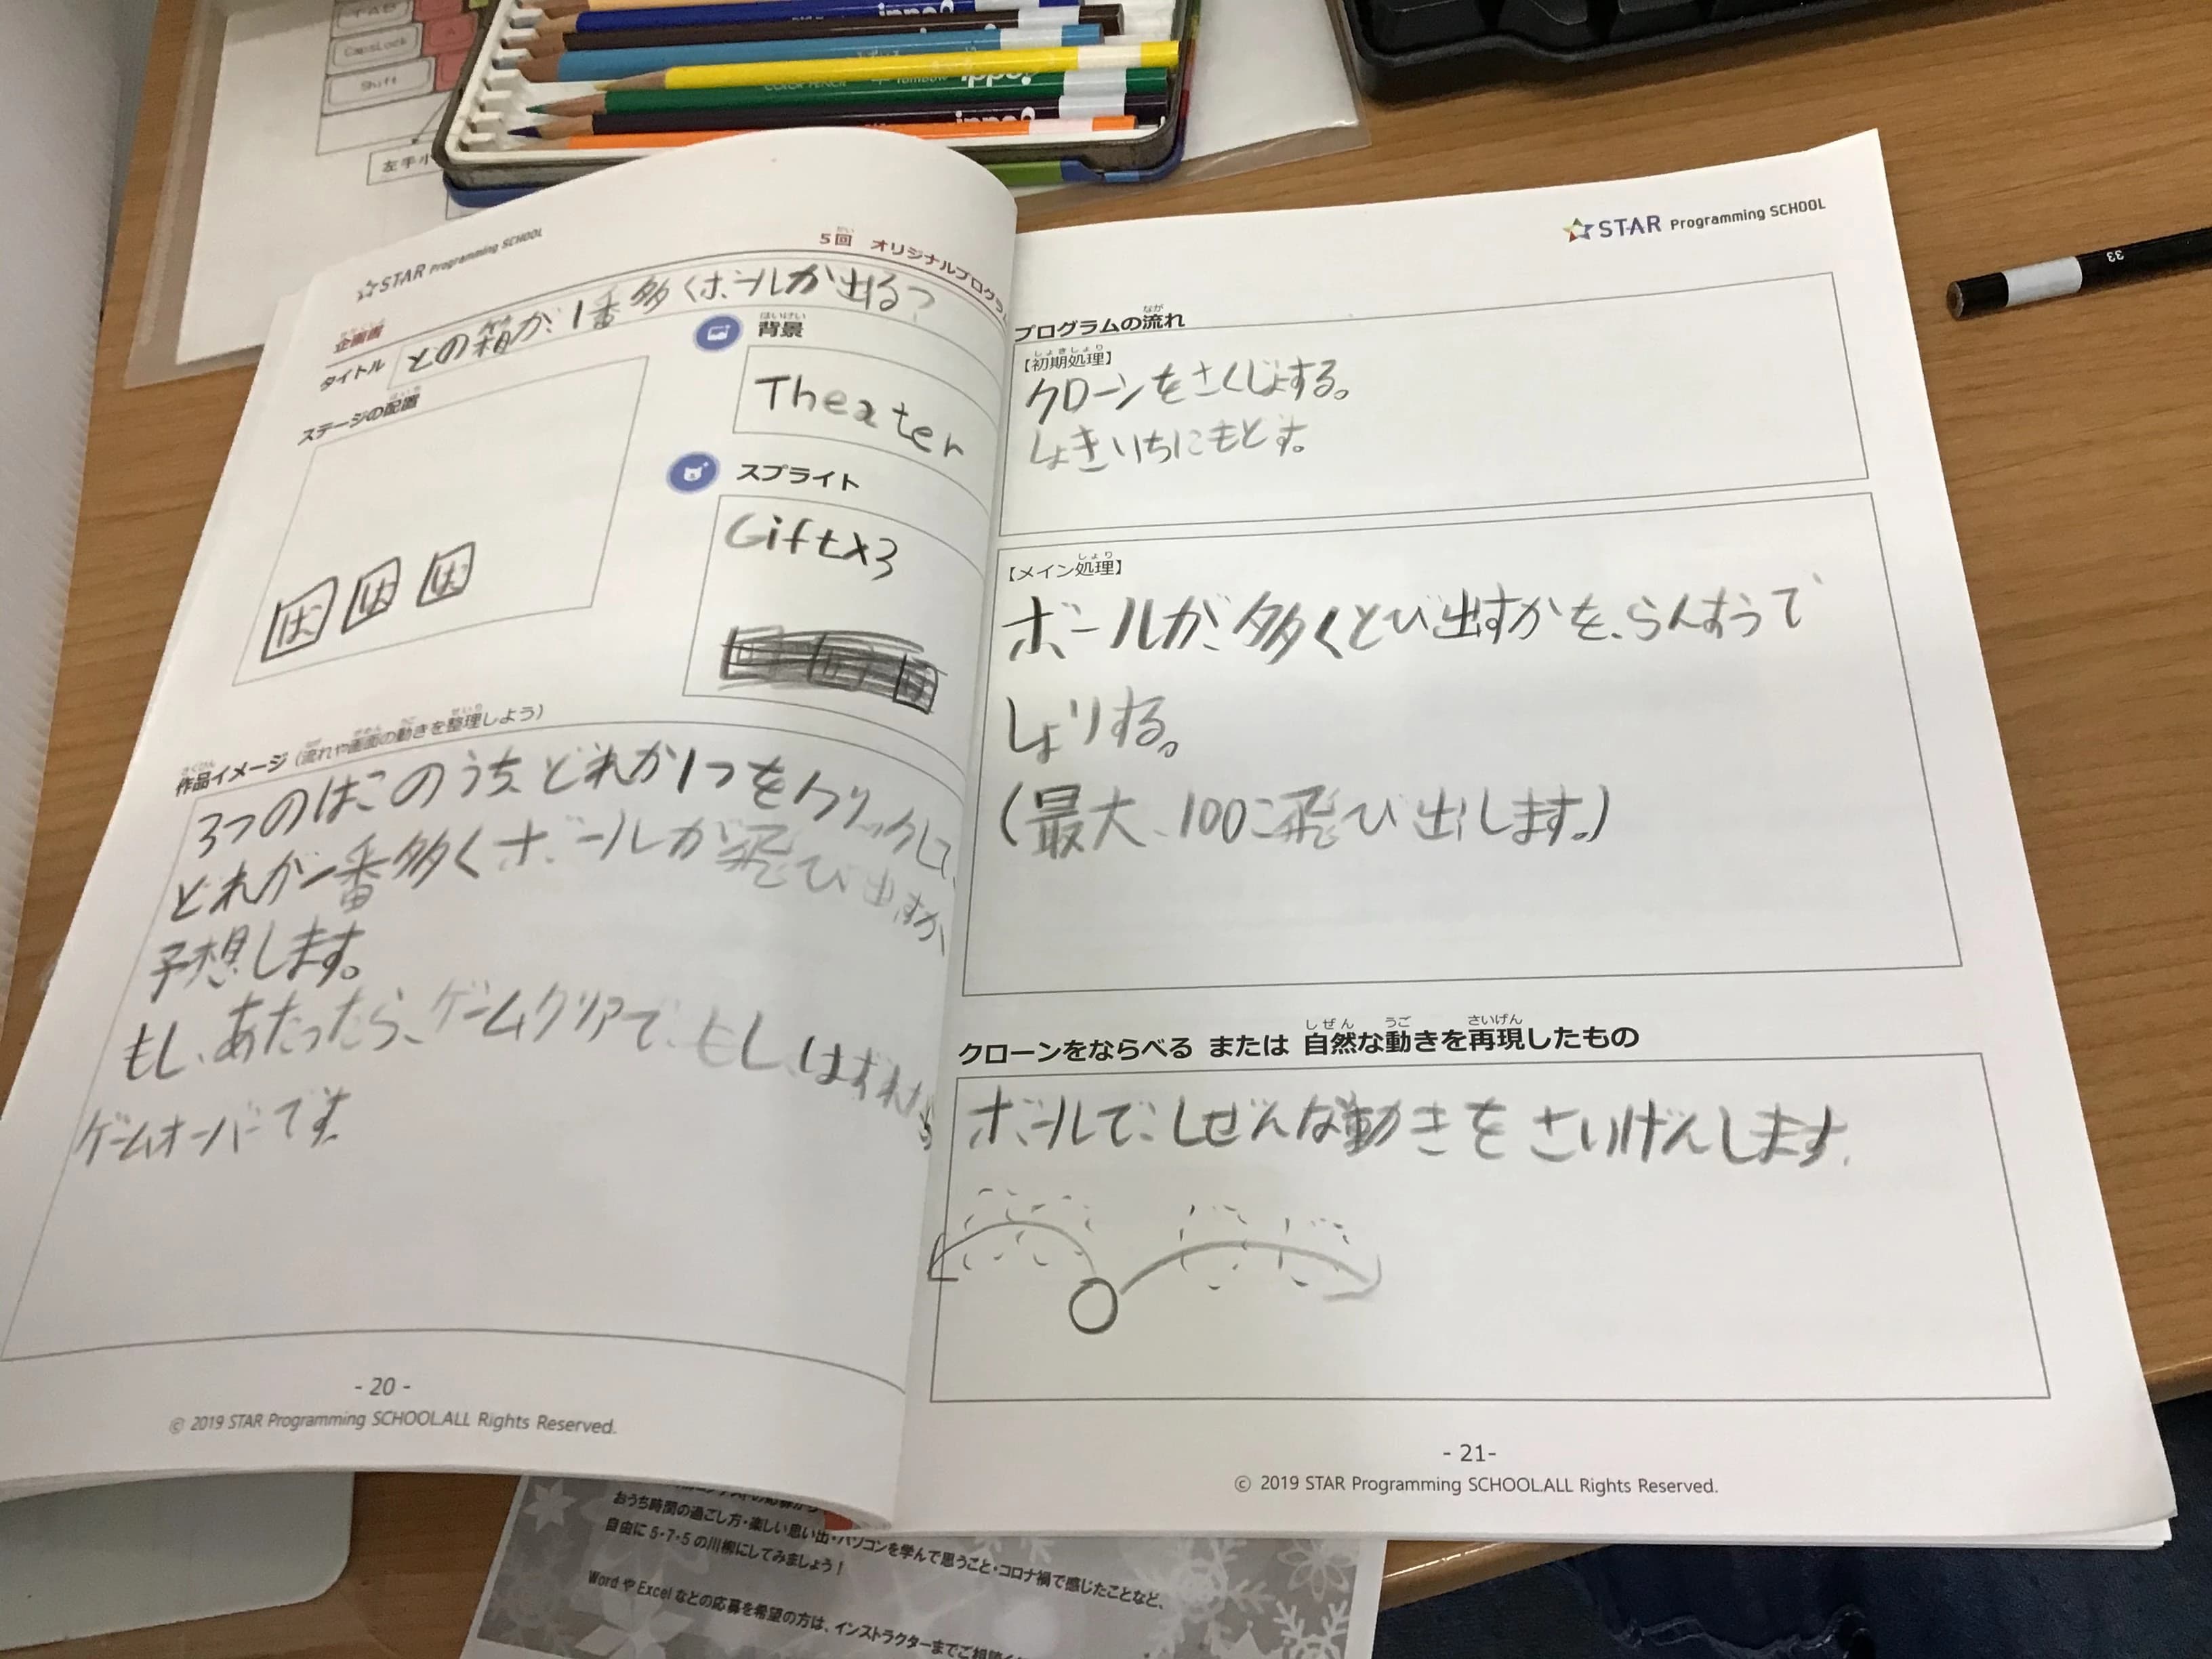 TAB
A
CapsLock
Shift
左手小
ippo!
COLOR PENCIL
Tombow
ippo!
ippo!
33
STAR Programming SCHOOL
5回 オリジナルプログラ
企画書
タイトル
どの箱が、1番多くボールが出る?
ステージの配置
背景
Theater
スプライト
Gift×3
作品イメージ (流れや画面の動きを整理しよう)
3つのはこのうち、どれか1つをクリックして、
どれが一番多くボールが飛び出すか
予想します。
もし、あたったら、ゲームクリアで、もし、はずれたら
ゲームオーバーです。
- 20 -
© 2019 STAR Programming SCHOOL.ALL Rights Reserved.
STAR Programming SCHOOL
プログラムの流れ
【初期処理】
クローンをさくじょする。
しょきいちにもどす。
【メイン処理】
ボールが、多くとび出すかを、らんすうで
しょりする。
(最大、100こ飛び出します。)
クローンをならべる または 自然な動きを再現したもの
ボールで、しぜんな動きをさいげんします。
- 21-
© 2019 STAR Programming SCHOOL.ALL Rights Reserved.
おうち時間の過ごし方・楽しい思い出・パソコンを学んで思うこと・コロナ禍で感じたことなど、
自由に 5・7・5 の川柳にしてみましょう!
Word や Excel などの応募を希望の方は、インストラクターまでご相談く